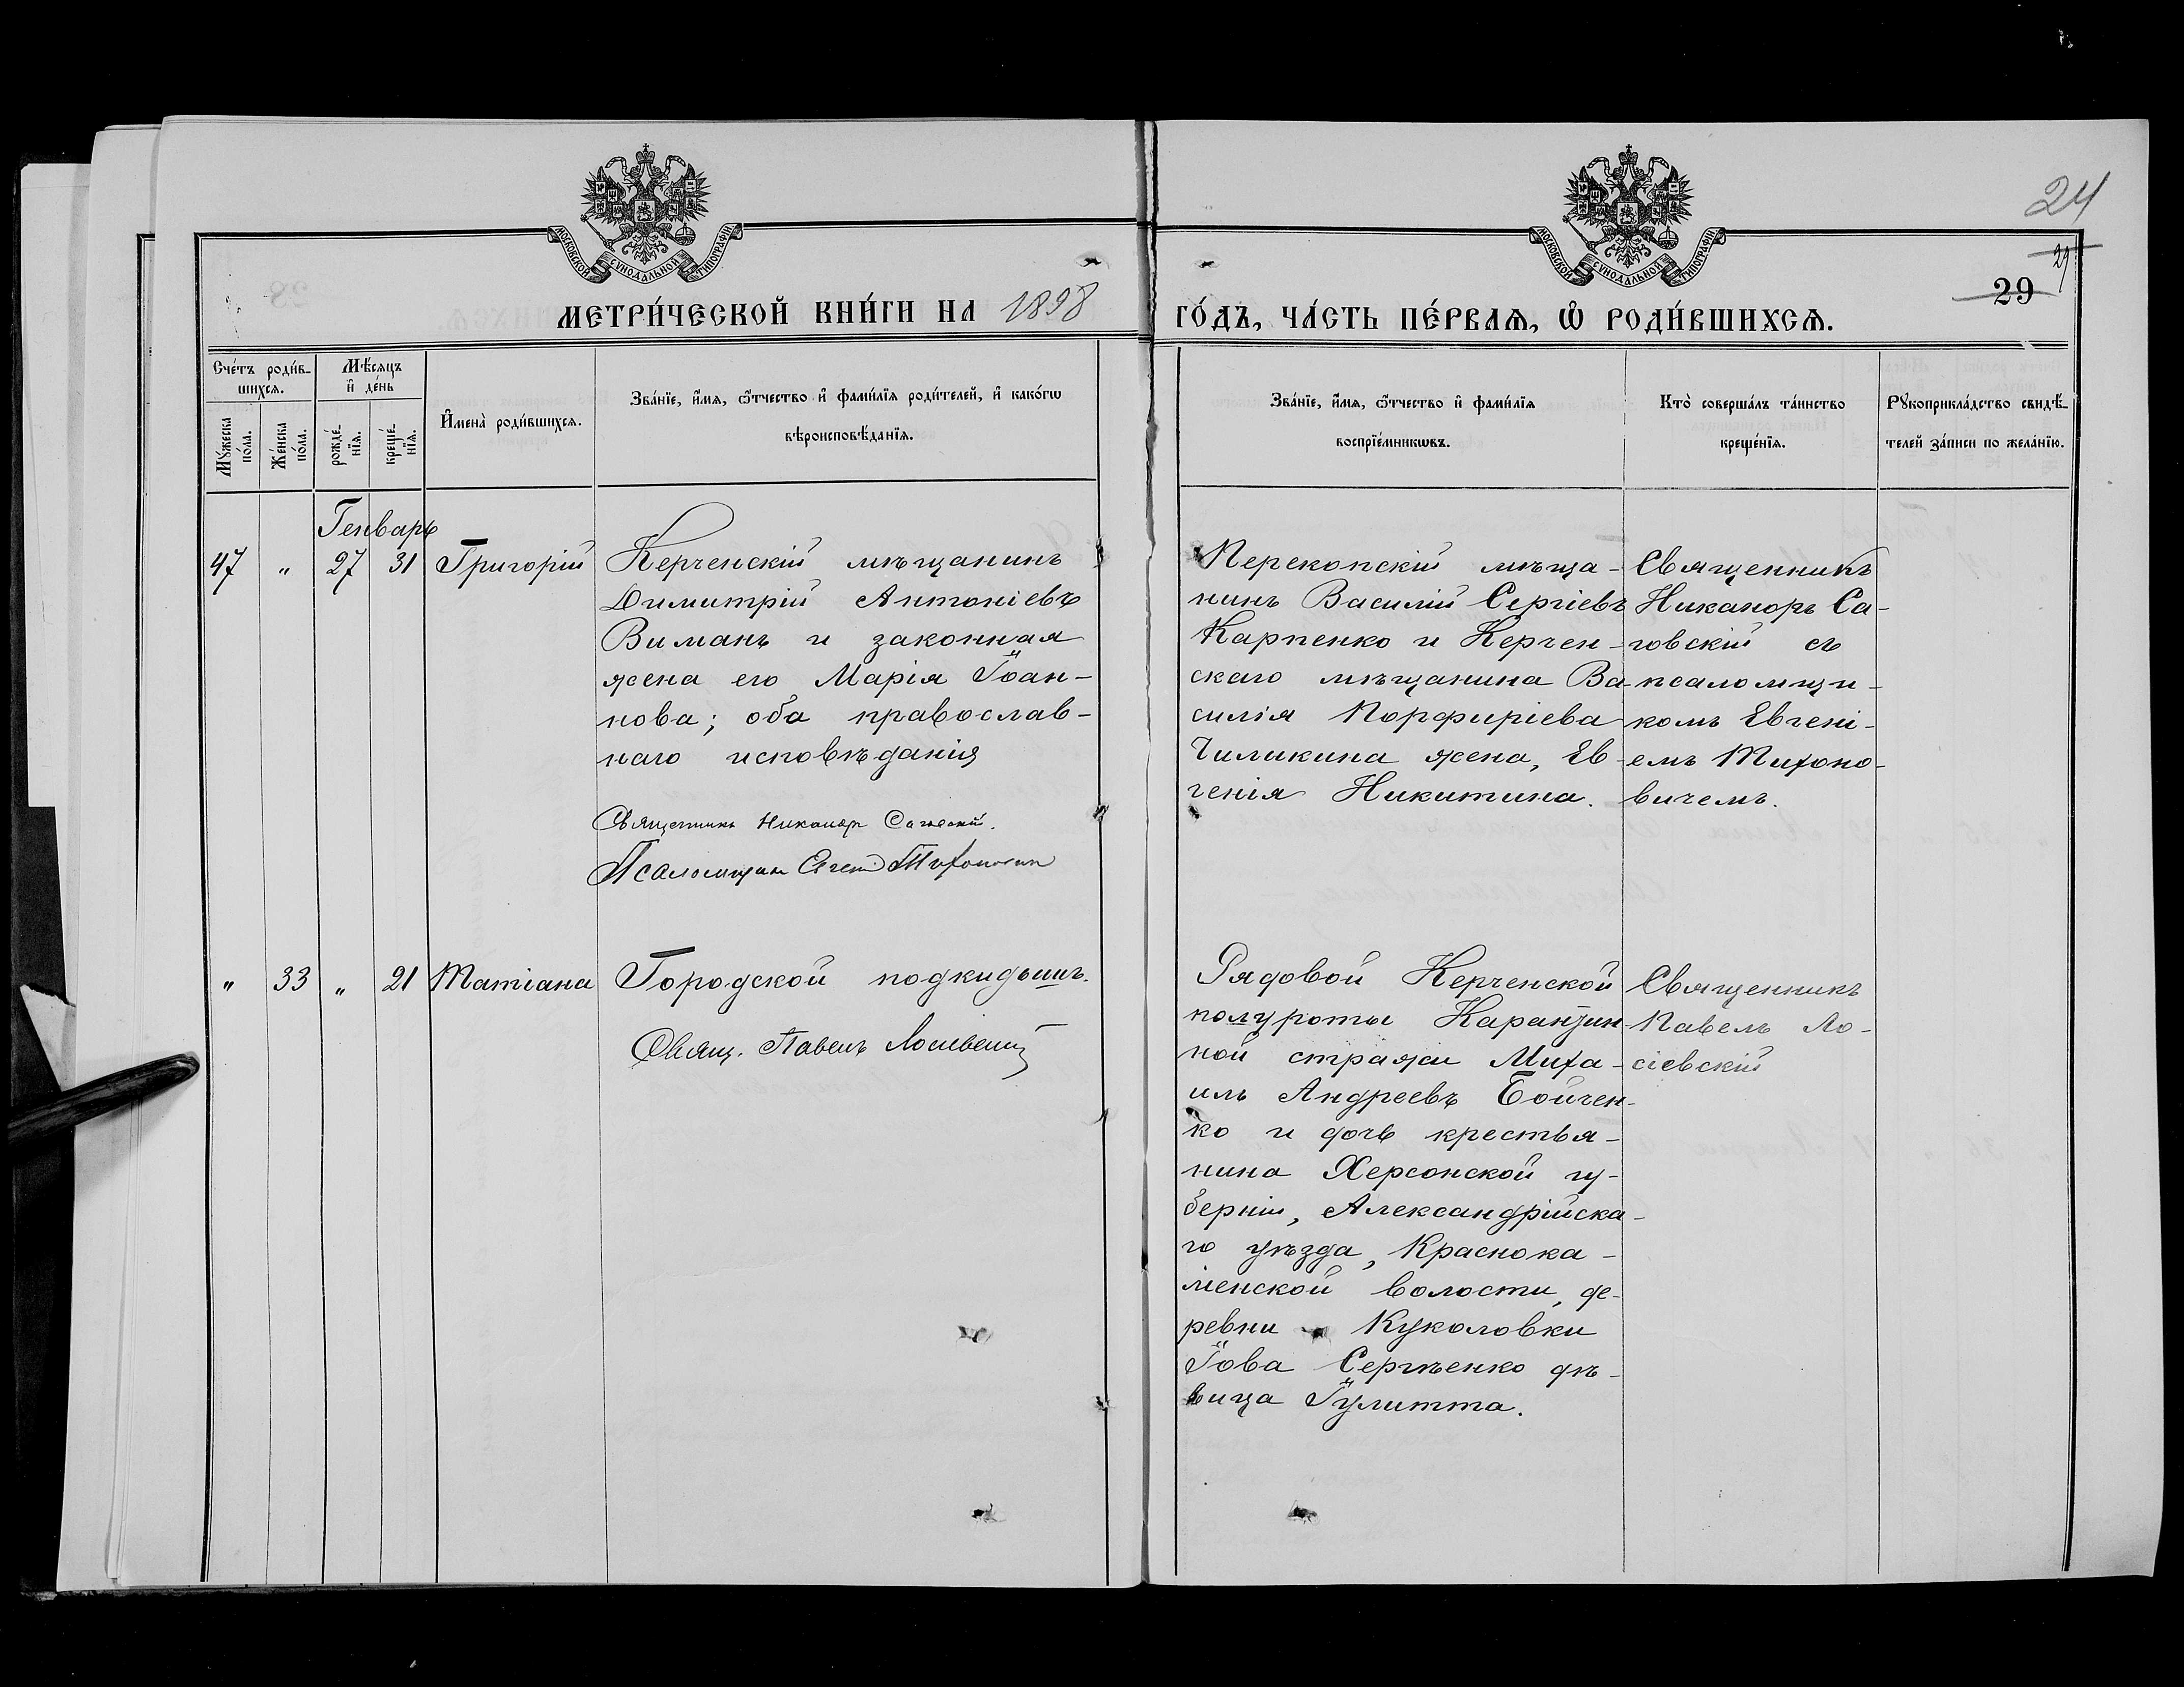 24
МОСКОВСКОЙ СѴНОДАЛЬНОЙ ТИПОГРАФІИ
МОСКОВСКОЙ СѴНОДАЛЬНОЙ ТИПОГРАФІИ
29
МЕТРИ́ЧЕСКОЙ КНИ́ГИ НА 1898
ГО́ДЪ, ЧА́СТЬ ПЕ́РВАЯ, Ѡ҆ РОДИ́ВШИХСѦ.
Сче́тъ роди́в-
шихсѧ.
Мѣ́сѧцъ
и҆ де́нь
Мꙋ́жеска
по́ла.
Же́нска
по́ла.
рожде́-
нїѧ.
креще́-
нїѧ.
И҆мена̀ роди́вшихсѧ.
Зва́нїе, и҆́мѧ, ѻ҆́тчество и҆ фами́лїѧ роди́телей, и҆ како́гѡ
вѣроисповѣ́данїѧ.
Зва́нїе, и҆́мѧ, ѻ҆́тчество и҆ фами́лїѧ
воспрїе́мникѡвъ.
Кто̀ соверша́лъ та́инство
креще́нїѧ.
Рꙋкоприкла́дство свидѣ́-
телей за́писи по жела́нїю.
Генварь
47 " 27 31 Григорій
Керченскій мѣщанинъ
Димитрій Антоніевъ
Виманъ и законная
жена его Марія Іоан-
нова; оба православ-
наго исповѣданія
Священникъ Никаноръ Саговскій.
Псаломщик Евгеній Тихонович
Перекопскій мѣща-
нинъ Василій Сергіевъ
Карпенко и Керчен-
скаго мѣщанина Ва-
силія Порфиріева
Чиликина жена, Ев-
генія Никитина.
Священникъ
Никаноръ Са-
говскій съ
псаломщи-
комъ Евгені-
емъ Тихоно-
вичемъ.
" 33 " 21 Татіана
Городской подкидышъ.
Свящ. Павелъ Лосіевскій
Рядовой Керченской
полуроты Карантин-
ной стражи Миха-
илъ Андреевъ Бойчен-
ко и дочь крестья-
нина Херсонской гу-
берніи, Александрійска-
го уѣзда, Краснока-
менской волости, де-
ревни Куколовки
Іова Сергѣенко дѣ-
вица Іулитта.
Священникъ
Павелъ Ло-
сіевскій